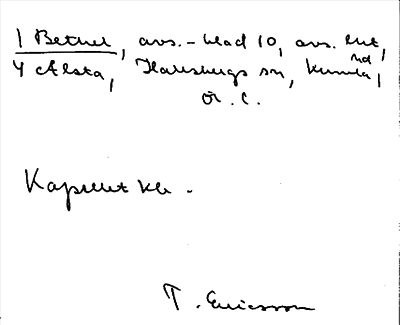 1 Bethel, avs.-blad 10, avs. ent,
4 Alsta, Hallsbergs sn, Kumla hd,
Ör. l.
Kapellet kb.
T. Ericsson